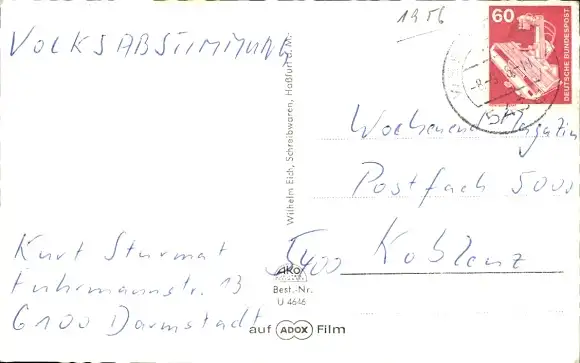 1956
60
DEUTSCHE BUNDESPOST
VOLKSABSTIMMUNG
Wilhelm Eich, Schreibwaren, Haßfurt a. M.
Wochenend Magazin
Postfach 5000
5400 Koblenz
Kurt Sturmat
Fuhrmannstr. 13
6100 Darmstadt
AKO
Best.-Nr.
U 4646
auf ADOX Film